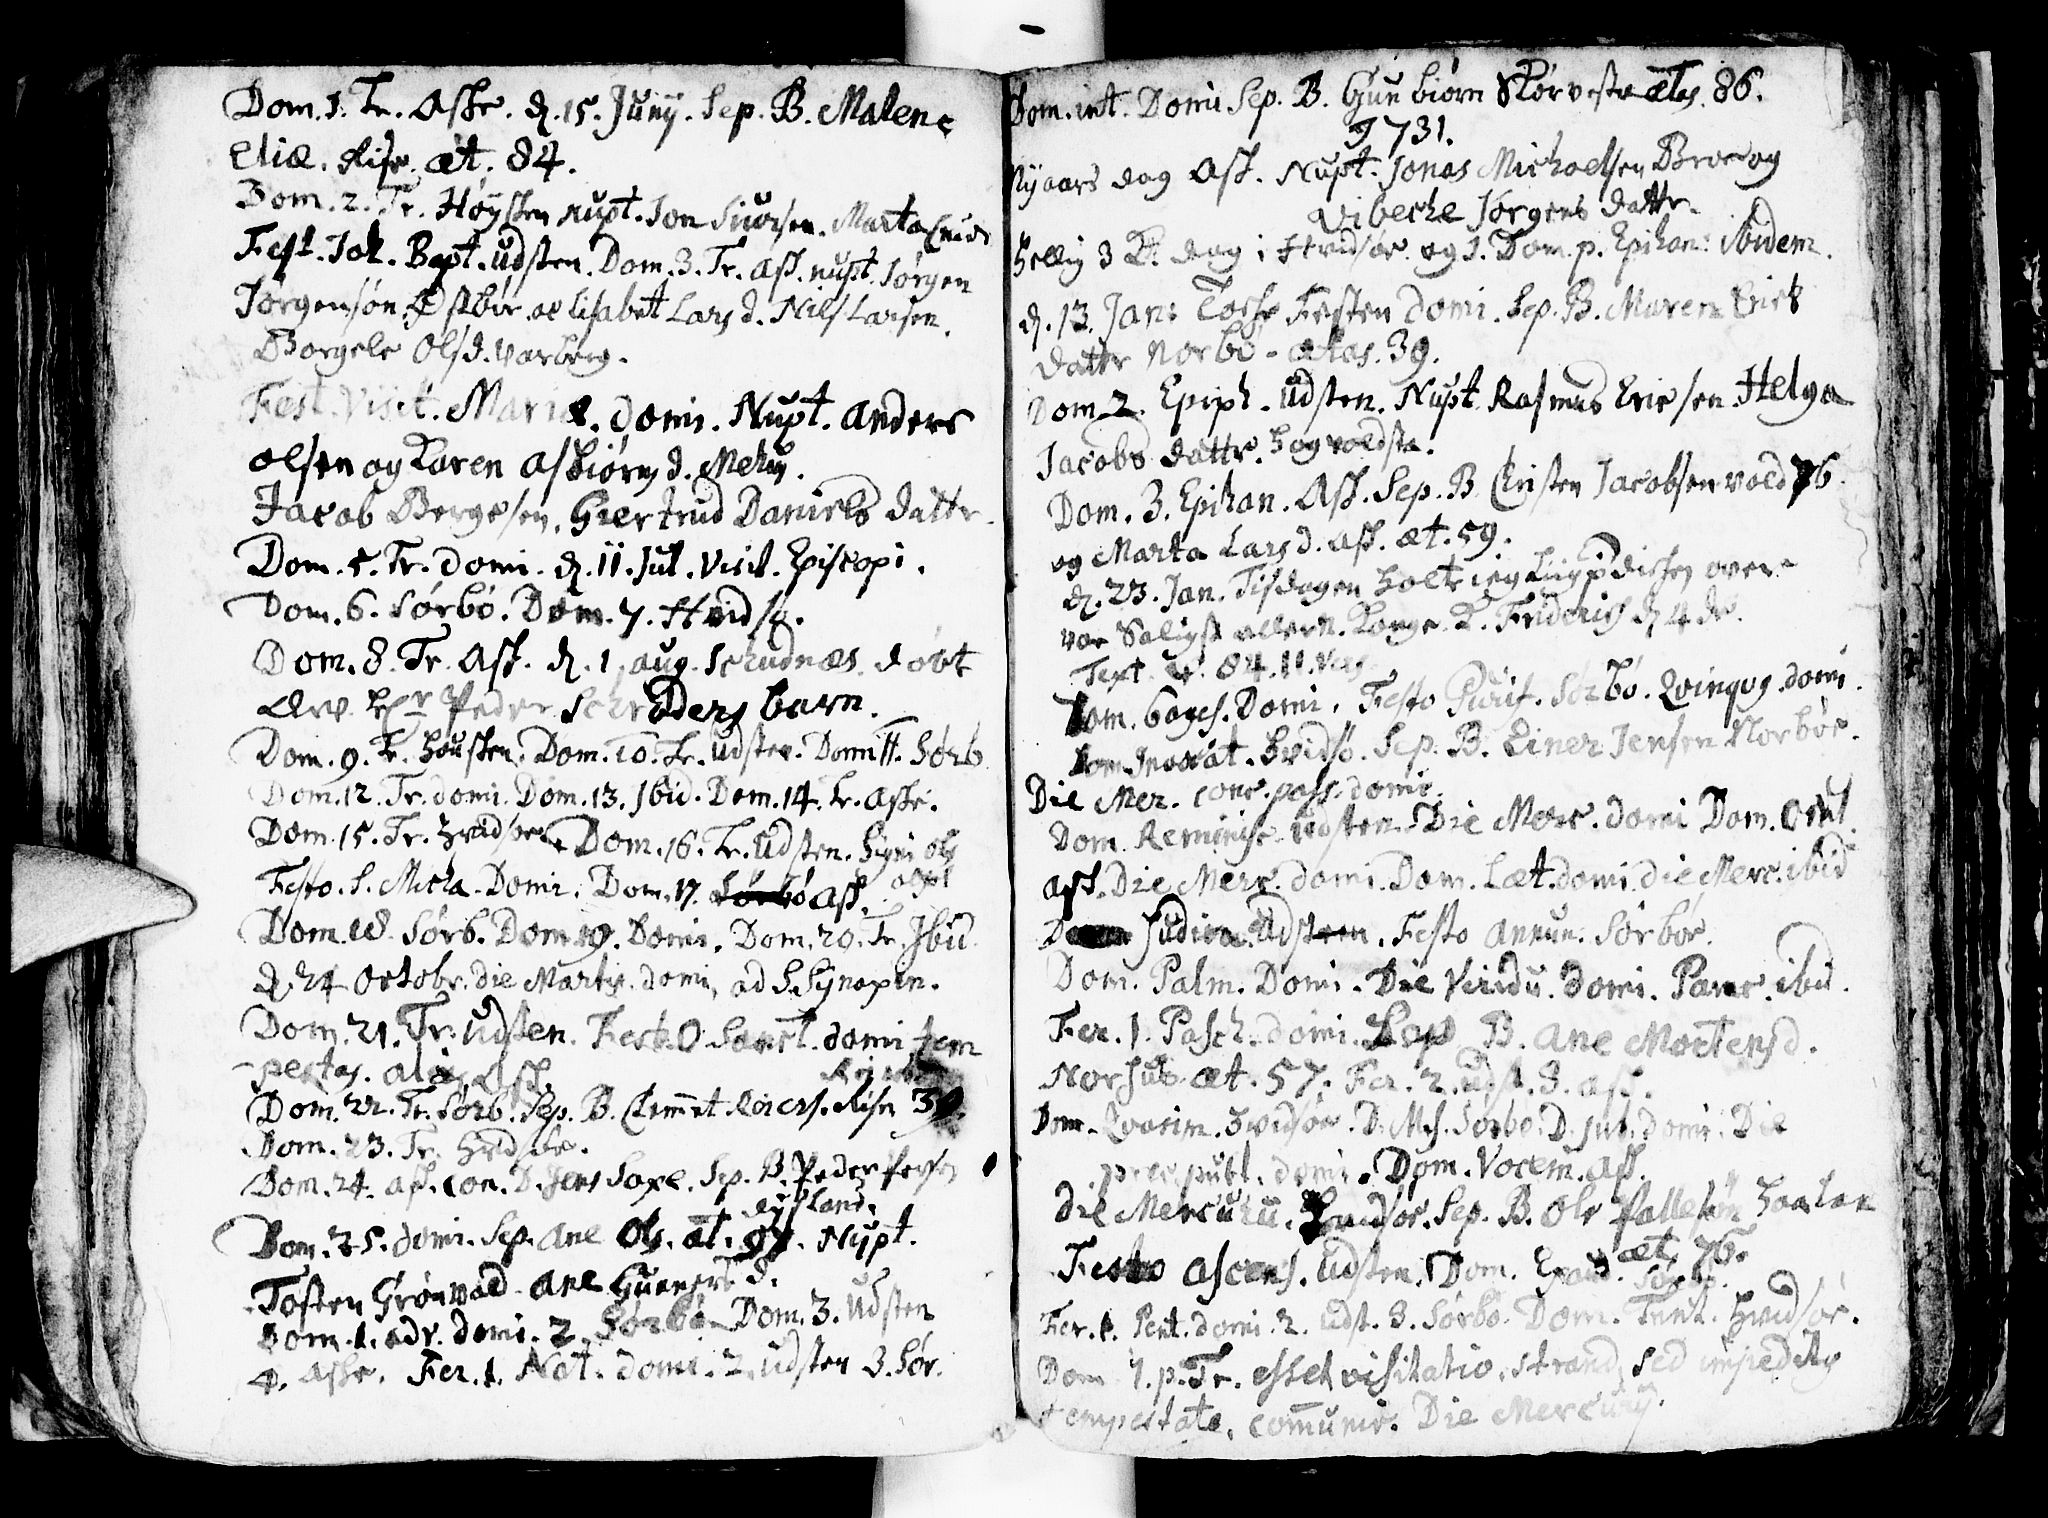 Dom. 1. Tr. Aske. d. 15. Junij. Sep. B. Malene
Eliæ. Rise. æt. 84.
Dom. 2. Tr. Høysten nupt. Jon Siursen. Marta
Fest. Joh. Bapt. udsten. Dom. 3. Tr. ask. nupt. Jørgen
Jørgensøn Østbør. oc Lisabet Lars d. Nils Larsen.
Borgele Ols d. Varberg.
Fest. Visit. Mariæ. domi. Nupt. Anders
Olsen og Karen Asbiørns d.
Jacob Bergesen. Giertrud Daniels datter.
Dom. 5. Tr. domi. d. 11. Jul. Visit. Episcopi.
Dom. 6. Sørbø. Dom. 7. Hvidsø.
Dom. 8. Tr. Ask. d. 1. aug. Schudnæs. døbt
Hr Peder Schrøders barn.
Dom. 9. Tr. Housken. Dom. 10. Tr. Udsten. Dom. 11. Sørb
Dom. 12. Tr. domi. Dom. 13. Ibid. Dom. 14. Tr. Aske.
Dom. 15. Tr. Hvidsøe. Dom. 16. Tr. Udsten.
Festo. S. Micha. Domi. Dom. 17. Sørbø Ask.
Dom. 18. Sørb. Dom. 19. Domi. Dom. 20. Tr. Ibid.
d. 24 Octobr. die Martis. domi. ad S. Synaxin.
Dom. 21. Tr. Udsten. Fest. O. Sanct. domi tem
pestas. alias Ask.
Dom. 22. Tr. Sørb. Sep. B. Clemmet Rise 39.
Dom. 23. Tr. Hvidsøe.
Dom. 24. ask. con. D. Jens Saxe. Sep. B. Peder
Dysland.
Dom. 25. domi. Sep. Ane Ols. æt. Nupt.
Tosten Grønvad. Ane Guners d.
Dom. 1. adv. domi. 2. Sørbø. Dom. 3. Udsten
4. Aske. Fer. 1. Nat. domi. 2. udsten 3. Sør.
Dom. int. Domi Sep. B. Gunbiørn Størveste ætas. 86.
1731.
Nyaars dag Ask. Nupt. Jonas Michaelsen Broe og
Vibeche Jørgens datter.
Hellig 3 K. dag i Hvidsøe og 1. Dom. p. Epihan: ibidem.
d. 13. Jan: Tacke Festen domi. Sep. B. Maren Erichs
datter Norbø. ætas. 39.
Dom. 2. Epiph. udsten. Nupt. Rasmus Ericsen. Helga
Jacobs datter. Hogvoldsta.
Dom. 3. Epihan. Ask. Sep. B. Christen Jacobsen vold 76.
og Marta Lars d. ask. æt. 59.
d. 23. Jan. Tisdagen holt ieg Liigprediken over
vor Saligst allern. Konge. K. Friderich d 4de.
Text. Ps. 84. 11. vers
Dom. 6ages. Domi. Festo Purif. Sørbø. Qvinqvg. domi.
Dom. Invocat. Hvidsø. Sep. B. Einer Jensen Norbøe.
Die Mer. conc. pass. domi.
Dom. Reminisc. Udsten. Die Merc. domi Dom. Ocul.
ask. Die Merc. domi. Dom. Læt. domi. die Merc. ibid
Judica. Udsten. Festo Annun. Sørbøe.
Dom. Palm. Domi. Die Viridu. domi. Parasc. ibid.
Fer. 1. Pasch. domi. Sep B. Ane Mortens d.
Norhus. æt. 57. Fer. 2. udst. 3. ask.
Dom. Qvasim. Hvidsøe. D. Mis. Sørbø. D. Jub. domi. Die
prec. publ. domi. Dom. Vocem. Ask.
die Mercurii. Hvidsøe. Sep. B. Ole Pallesøn Haaland
æt. 76.
Festo Ascens. Udsten. Dom. Exaud. Sørbø.
Fer. 1. Pent. domi. 2. udst. 3. Sørbø. Dom. Trinit. Hvidsøe.
Dom. 1. p. Tr. esset visitatio. Strand, sed impedita
tempestate, communio. Die Mercurij.